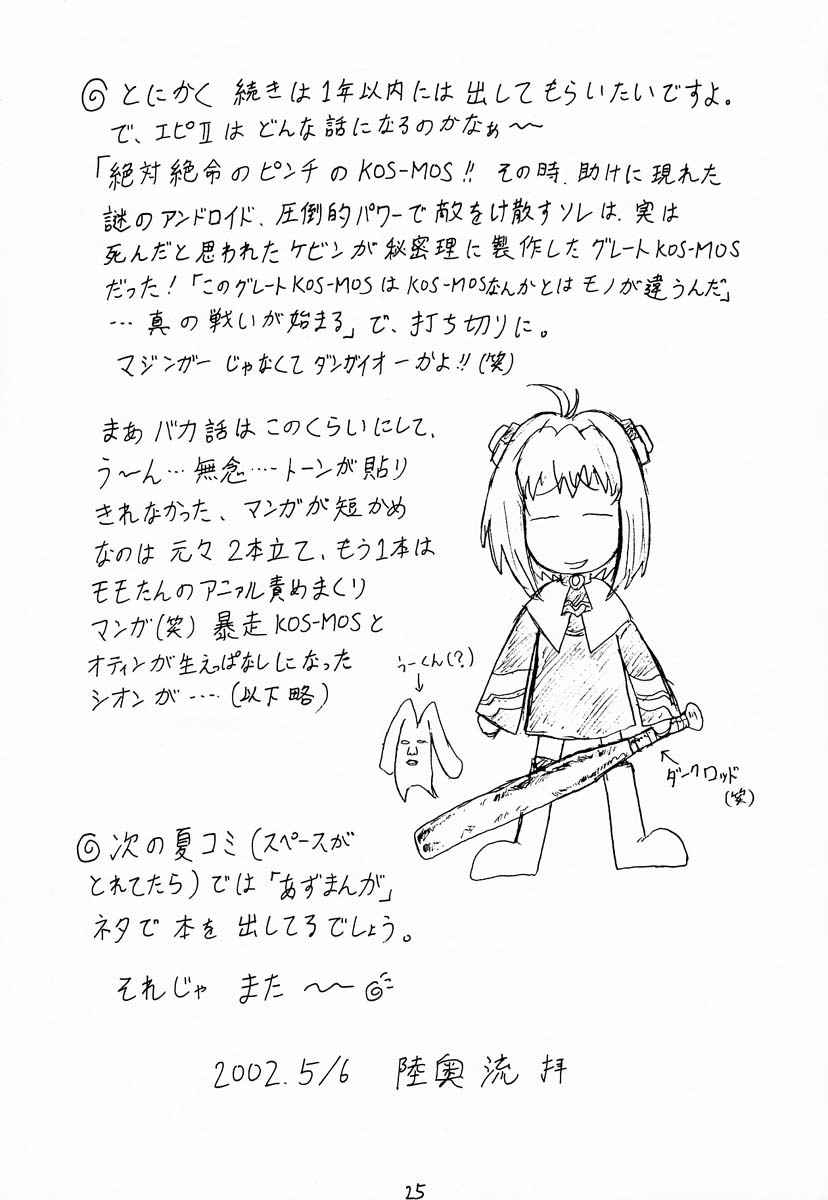 ◎とにかく 続きは1年以内には 出してもらいたいですよ。
で、エピⅡは どんな話になるのかなぁ〜〜
「絶対絶命のピンチのKOS-MOS!! その時、助けに現れた
謎のアンドロイド、圧倒的パワーで敵をけ散すソレは、実は
死んだと思われたケビンが秘密理に製作したグレートKOS-MOS
だった!「このグレートKOS-MOSはKOS-MOSなんかとはモノが違うんだ」
…真の戦いが始まる」で、打ち切りに。
マジンガーじゃなくてダンガイオーかよ!!(笑)
まぁバカ話はこのくらいにして、
う〜ん…無念…‥トーンが貼り
きれなかった、マンガが短かめ
なのは元々2本立て、もう1本は
モモたんのアニァル責めまくり
マンガ(笑)暴走KOS-MOSと
オティンが生えっぱなしになった
シオンが…‥(以下略)
うーくん(?)
ダークロッド
(笑)
◎次の夏コミ(スペースが
とれてたら)では「あずまんが」
ネタで本を出してるでしょう。
それじゃ また〜〜
2002.5/6 陸奥流 拝
25